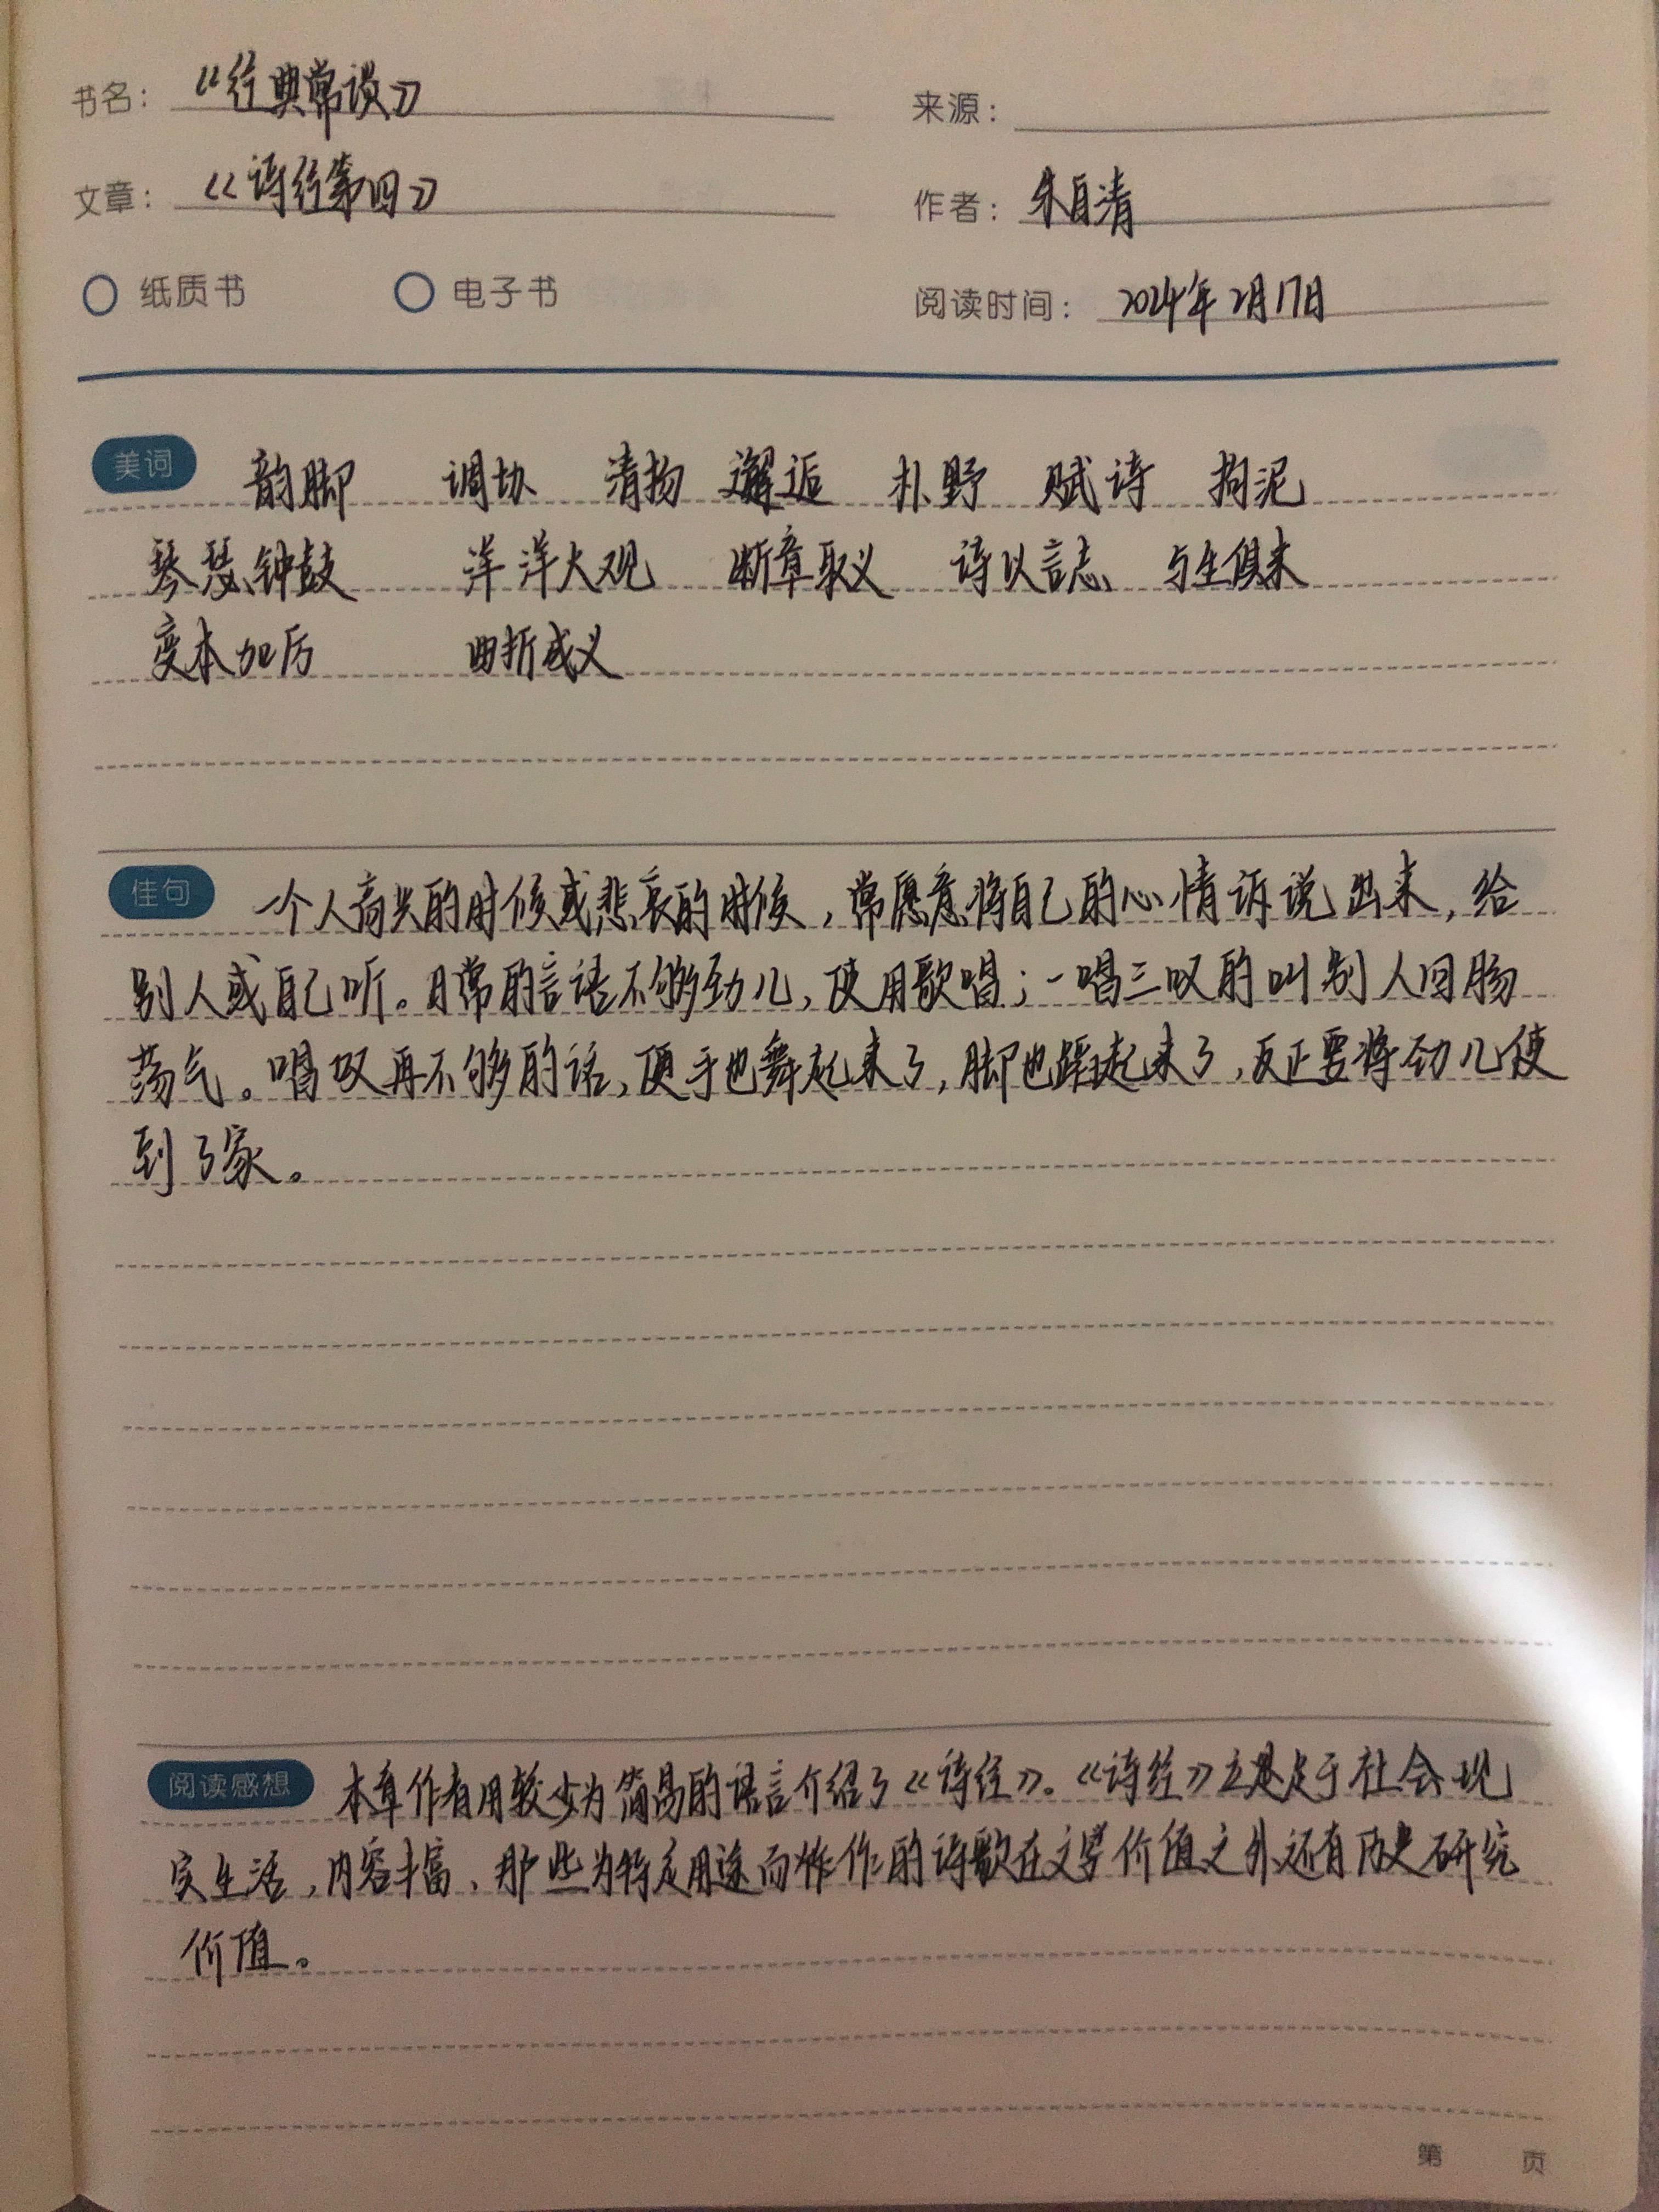 书名： 《经典常谈》 来源：
文章： 《诗经第四》 作者： 朱自清
纸质书 电子书 阅读时间： 2024年2月17日
美词 韵脚 调协 清扬 邂逅 朴野 赋诗 拘泥
琴瑟、钟鼓 洋洋大观 断章取义 诗以言志 与生俱来
变本加厉 曲折成义
佳句 一个人高兴的时候或悲哀的时候，常愿意将自己的心情诉说出来，给
别人或自己听。日常的言语不够劲儿，便用歌唱；一唱三叹的叫别人回肠
荡气。唱叹再不够的话，便手也舞起来了，脚也蹈起来了，反正要将劲儿使
到了家。
阅读感想 本章作者用较为简易的语言介绍了《诗经》。《诗经》立足于社会现
实生活，内容丰富、那些为特定用途而作的诗歌在文学价值之外还有历史研究
价值。
第 页